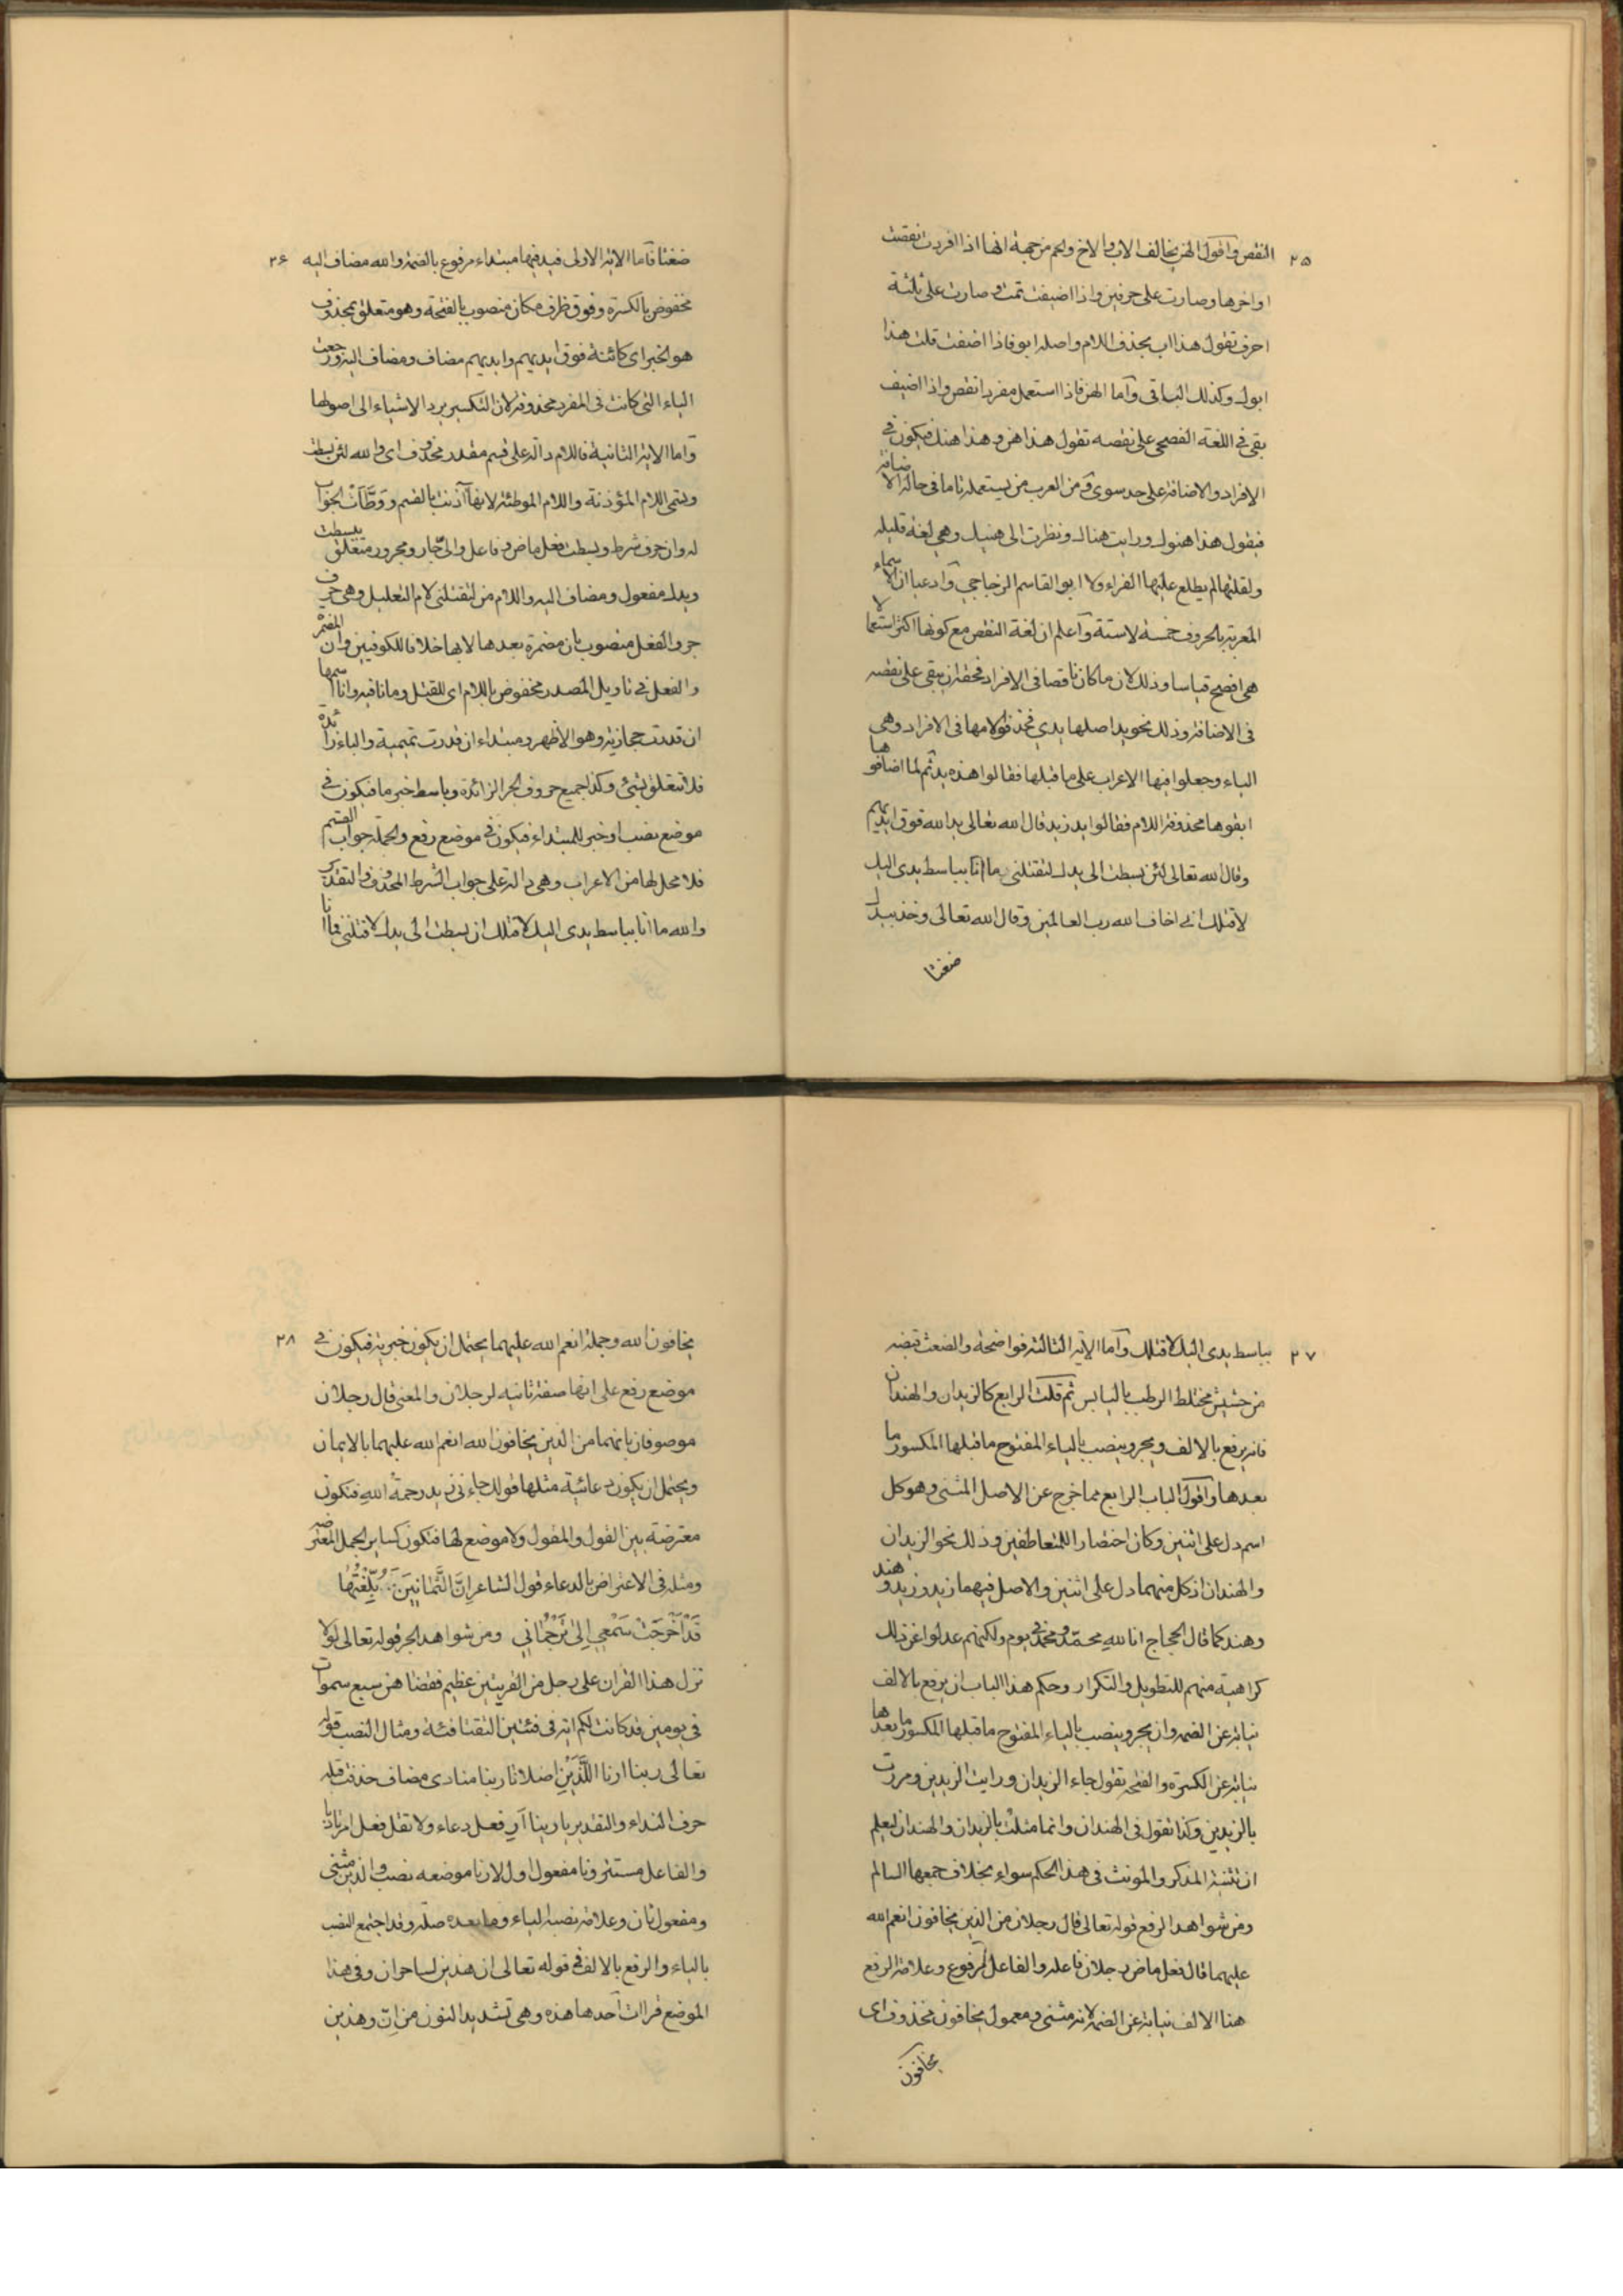 ٢٥
النقص واقول الهن يخالف الاب والاخ والحم من جهة انها اذا افردت نقصت
اواخرها وصارت على حرفين واذا اضيفت تمت وصارت على ثلثة
احرف تقول هذا اب بحذف اللام واصله ابو فاذا اضفت قلت هذا
ابوك وكذلك الباقى واما الهن فاذا استعمل مفردا نقص واذا اضيف
بقى فى اللغة الفصحى على نقصه تقول هذا هن وهذا هنك فيكون فى
الافراد والاضافة على حد سوى ومن العرب من يستعمله تاما فى حالة الاضافة
فيقول هذا هنوك ورايت هناك ونظرت الى هنيك وهى لغة قليلة
ولقلتها لم يطلع عليها الفراء ولا ابو القاسم الزجاجي وادعيا ان الاسماء
المعربة بالحروف خمسة لا ستة واعلم ان لغة النقص مع كونها اكثر استعمالا
هى افصح قياسا وذلك لان ما كان ناقصا فى الافراد فحقه ان يبقى على نقصه
فى الاضافة وذلك نحو يد اصلها يدي فحذفوا لامها فى الافراد وهى
الياء وجعلوا فيها الاعراب على ما قبلها فقالوا هذه يد ثم لما اضافوها
ابقوها محذوفة اللام فقالوا يد زيد قال الله تعالى يد الله فوق ايديهم
وقال الله تعالى لئن بسطت الى يدك لتقتلنى ما انا بباسط يدى اليك
لاقتلك انى اخاف الله رب العالمين وقال الله تعالى وخذ بيدك
ضغثا
٢٦
ضغثا فاما الاية الاولى فيد فيها مبتداء مرفوع بالضمة والله مضاف اليه
مخفوض بالكسرة وفوق ظرف مكان منصوب بالفتحة وهو متعلق بمحذوف
هو الخبر اى كائنة فوق ايديهم وايديهم مضاف ومضاف اليه ورجعت
الياء التى كانت فى المفرد محذوفة لان التكسير يرد الاشياء الى اصولها
واما الاية الثانية فاللام دالة على قسم مقدر محذوف اى والله لئن بسطت
وتسمى اللام المؤذنة واللام الموطئة لانها آذنت بالقسم ووطّأت الجواب
له وان حرف شرط وبسطت فعل ماض وفاعل والىّ جار ومجرور متعلق ببسطت
ويدك مفعول ومضاف اليه واللام من لتقتلنى لام التعليل وهى حرف
جر والفعل منصوب بان مضمرة بعدها لا بها خلافا للكوفيين وان المضمرة
والفعل فى تاويل المصدر مخفوض باللام اى للقتل وما نافية وانا اسمها
ان قدرت حجازية وهو الاظهر ومبتداء ان قدرت تميمية والباء زائدة
فلا تتعلق بشئ وكذا جميع حروف الجر الزائدة وباسط خبر ما فيكون فى
موضع نصب او خبر للمبتداء فيكون فى موضع رفع والجملة جواب القسم
فلا محل لها من الاعراب وهى دالة على جواب الشرط المحذوف والتقدير
والله ما انا بباسط يدى اليك لاقتلك ان بسطت الى يدك لتقتلنى فما انا
٢٧
بباسط يدى اليك لاقتلك واما الاية الثالثة فواضحة والضغث قبضة
من حشيش مختلط الرطب باليابس ثم قلت الرابع كالزيدان والهندان
فانه يرفع بالالف ويجر وينصب بالياء المفتوح ما قبلها المكسور ما
بعدها واقول الباب الرابع مما خرج عن الاصل المثنى وهو كل
اسم دل على اثنين وكان اختصارا للمتعاطفين وذلك نحو الزيدان
والهندان اذ كل منهما دل على اثنين والاصل فيهما زيد وزيد وهند
وهند كما قال الحجاج انا لله محمّد ومحمد فى يوم ولكنهم عدلوا عن ذلك
كراهية منهم للتطويل والتكرار وحكم هذا الباب ان يرفع بالالف
نيابة عن الضمة وان يجر وينصب بالياء المفتوح ما قبلها المكسور ما بعدها
نيابة عن الكسرة والفتحة تقول جاء الزيدان ورايت الزيدين ومررت
بالزيدين وكذا تقول فى الهندان وانما مثلت بالزيدان والهندان ليعلم
ان تثنية المذكر والمونث فى هذا الحكم سواء بخلاف جمعها السالم
ومن شواهد الرفع قوله تعالى قال رجلان من الذين يخافون انعم الله
عليهما قال فعل ماض رجلان فاعله والفاعل مرفوع وعلامة الرفع
هنا الالف نيابة عن الضمة لانه مثنى ومعمول يخافون محذوف اى
يخافون
٢٨
يخافون الله وجملة انعم الله عليهما يحتمل ان يكون خبرية فيكون فى
موضع رفع على انها صفة ثانية لرجلان والمعنى قال رجلان
موصوفان بانهما من الذين يخافون الله انعم الله عليهما بالايمان
ويحتمل ان يكون دعائية مثلها قولك جاءنى زيد رحمة الله فتكون
معترضة بين القول والمقول ولا موضع لها فتكون كساير الجمل المعترضة
ومثله فى الاعتراض بالدعاء قول الشاعر اِنَّ الثَّمَانِينَ وَبُلِّغْتُهَا
قَدْ اَخْرَجَتْ سَمْعِي اِلىٰ تَرْجُمَانِي ومن شواهد الجر قوله تعالى لولا
نزل هذا القران على رجل من القريتين عظيم فقضاهن سبع سموات
فى يومين قد كانت لكم اية فى فئتين التقتا فئة ومثال النصب قوله
تعالى ربنا ارنا اللَّذَيْنِ اضلانا ربنا منادى مضاف حذف قبله
حرف النداء والتقدير يا ربنا أرِ فعل دعاء ولا تقل فعل امر تادبا
والفاعل مستتر ونا مفعول اول لارنا موضعه نصب والذين مثنى
ومفعول ثان وعلامة نصبه الياء وما بعده صلة وقد اجتمع النصب
بالياء والرفع بالالف فى قوله تعالى ان هذين لساحران وفى هذا
الموضع قراات احدها هذه وهى تشديد النون من انّ وهذين